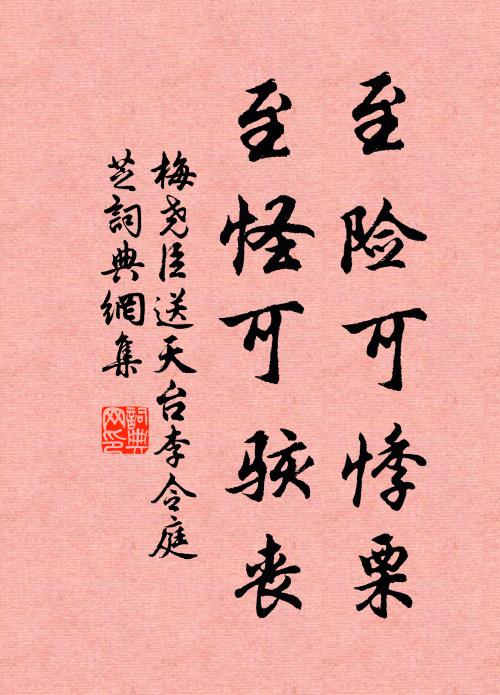 至险可悸栗
至怪可骇丧
梅尧臣送天台李令庭
芝詞典網集
詞典
网印